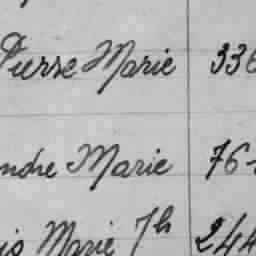 Pierre Marie 336
ndre Marie 76-
is Marie Th 244